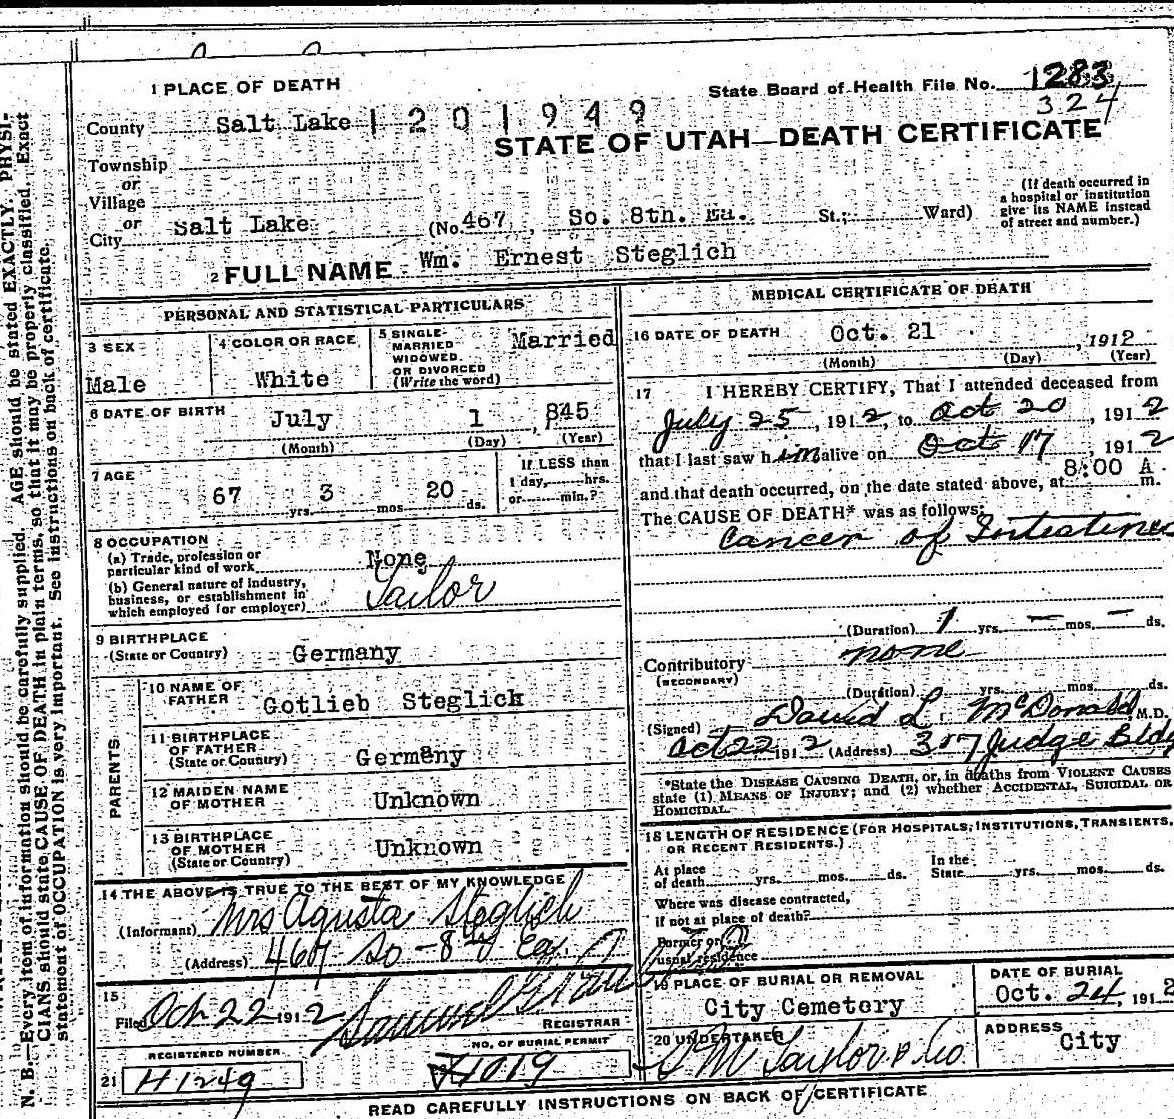 N. B.—Every item of information should be carefully supplied. AGE should be stated EXACTLY. PHYSI-
CIANS should state CAUSE OF DEATH in plain terms, so that it may be properly classified. Exact
statement of OCCUPATION is very important. See instructions on back of certificate.
1 PLACE OF DEATH
State Board of Health File No. 1283
324
County Salt Lake 1201949
STATE OF UTAH—DEATH CERTIFICATE
Township
or
Village
or
City Salt Lake (No. 467, So. 8th. Ea. St.; Ward)
(If death occurred in
a hospital or institution
give its NAME instead
of street and number.)
2 FULL NAME Wm. Ernest Steglich
PERSONAL AND STATISTICAL PARTICULARS
3 SEX
Male
4 COLOR OR RACE
White
5 SINGLE
MARRIED
WIDOWED
OR DIVORCED
(Write the word)
Married
6 DATE OF BIRTH
July 1, 845
(Month) (Day) (Year)
7 AGE
67 yrs. 3 mos. 20 ds.
If LESS than
1 day, hrs.
or min.?
8 OCCUPATION
(a) Trade, profession or
particular kind of work None
(b) General nature of industry,
business, or establishment in
which employed (or employer) Tailor
9 BIRTHPLACE
(State or Country) Germany
PARENTS
10 NAME OF
FATHER Gotlieb Steglich
11 BIRTHPLACE
OF FATHER
(State or Country) Germany
12 MAIDEN NAME
OF MOTHER Unknown
13 BIRTHPLACE
OF MOTHER
(State or Country) Unknown
14 THE ABOVE IS TRUE TO THE BEST OF MY KNOWLEDGE
(Informant) Mrs Agusta Steglich
(Address) 467 So - 8th Ea.
15
Filed Oct 22 1912 Samuel G.
REGISTRAR
REGISTERED NUMBER
21 H1249
NO. OF BURIAL PERMIT
1019
MEDICAL CERTIFICATE OF DEATH
16 DATE OF DEATH Oct. 21, 1912
(Month) (Day) (Year)
17 I HEREBY CERTIFY, That I attended deceased from
July 25, 1912, to Oct 20, 1912
that I last saw him alive on Oct 17, 1912
and that death occurred, on the date stated above, at 8:00 A m.
The CAUSE OF DEATH* was as follows:
Cancer of Intestines
(Duration) 1 yrs. — mos. — ds.
Contributory none
(SECONDARY)
(Duration) yrs. mos. ds.
(Signed) David L. McDonald, M.D.
Oct 22 1912 (Address) 307 Judge Bldg
*State the DISEASE CAUSING DEATH, or, in deaths from VIOLENT CAUSES
state (1) MEANS OF INJURY; and (2) whether ACCIDENTAL, SUICIDAL OR
HOMICIDAL.
18 LENGTH OF RESIDENCE (FOR HOSPITALS, INSTITUTIONS, TRANSIENTS,
OR RECENT RESIDENTS.)
At place
of death yrs. mos. ds.
In the
State yrs. mos. ds.
Where was disease contracted,
if not at place of death?
Former or
usual residence
19 PLACE OF BURIAL OR REMOVAL
City Cemetery
DATE OF BURIAL
Oct. 24, 1912
20 UNDERTAKER
S M Taylor & Co
ADDRESS
City
READ CAREFULLY INSTRUCTIONS ON BACK OF CERTIFICATE